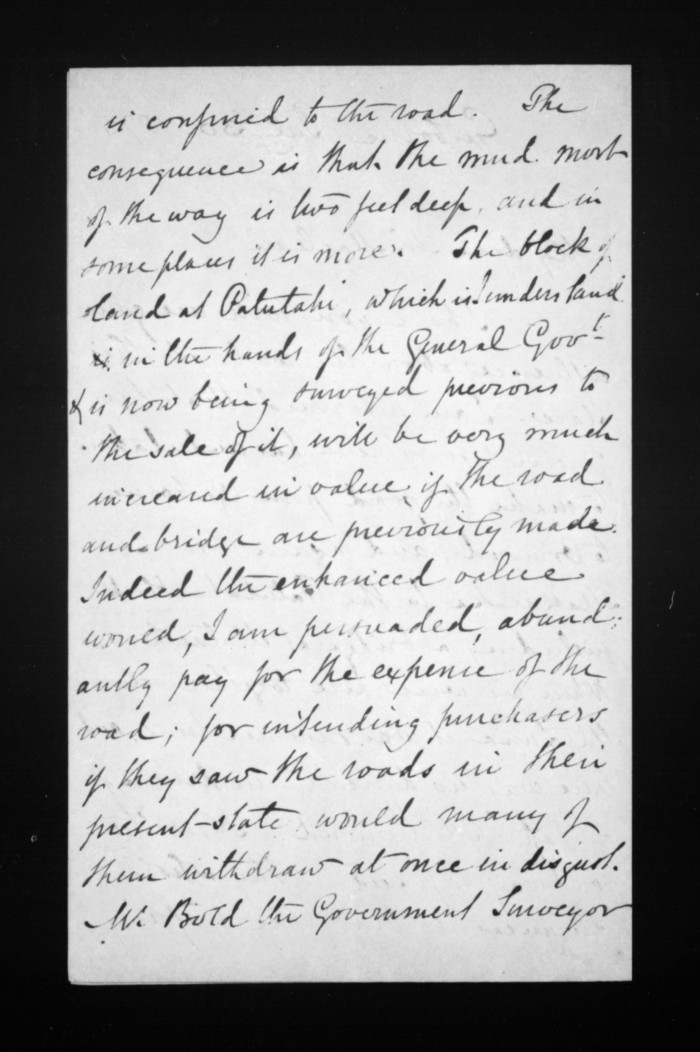 is confined to the road. The
consequence is that the mud most
of the way is two feet deep, and in
some places it is more. The block of
land at Patutahi, which is I understand
in the hands of the General Govt.
& is now being surveyed previous to
the sale of it, will be very much
increased in value if the road
and bridge are previously made.
Indeed the enhanced value
would, I am persuaded, abund:
antly pay for the expense of the
road; for intending purchasers
if they saw the roads in their
present state would many of
them withdraw at once in disgust.
Mr. Bold the Government Surveyor